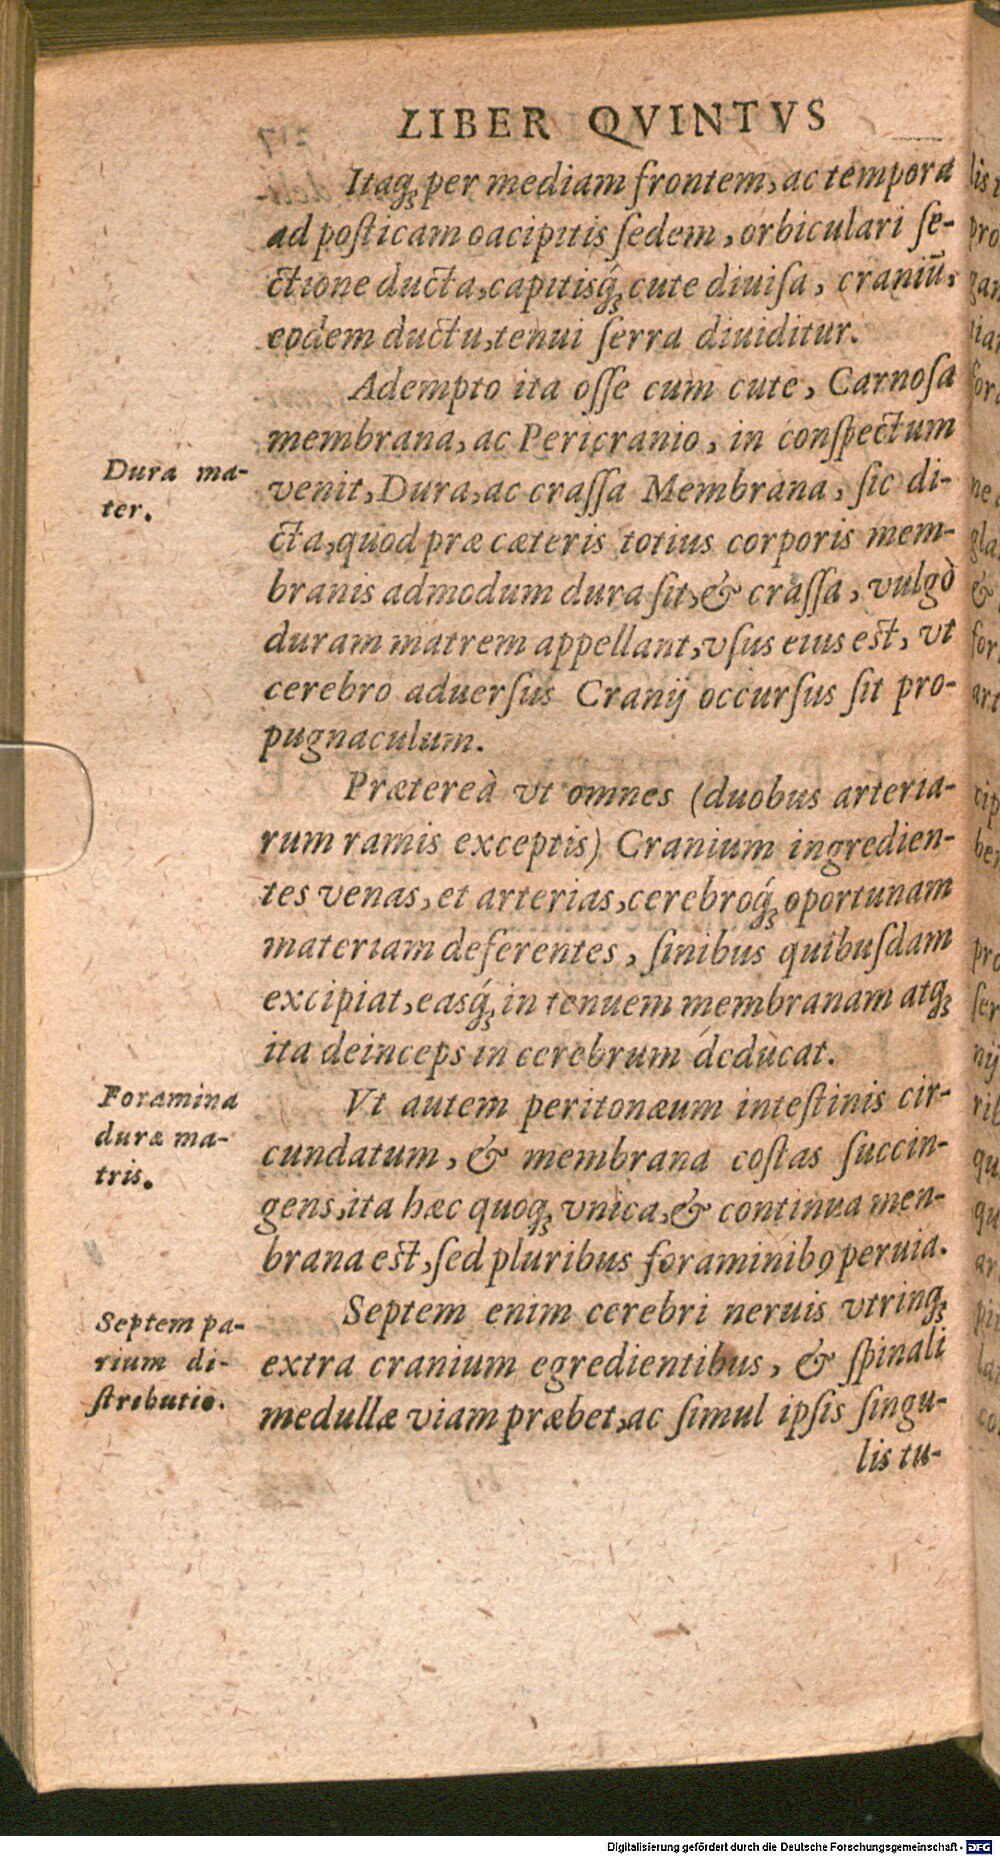 LIBER QVINTVS
Itaq́; per mediam frontem, ac tempora
ad poſticam oacipitis ſedem, orbiculari ſe-
ctione ducta, capitisq́; cute diuiſa, craniū,
eodem ductu, tenui ſerra diuiditur.
Adempto ita oſſe cum cute, Carnoſa
membrana, ac Pericranio, in conſpectum
Dura ma-
ter.
venit, Dura, ac craſſa Membrana, ſic di-
cta, quod præ cæteris totius corporis mem-
branis admodum dura ſit, & craſſa, vulgò
duram matrem appellant, vſus eius est, vt
cerebro aduerſus Cranij occurſus ſit pro-
pugnaculum.
Prætereà vt omnes (duobus arteria-
rum ramis exceptis) Cranium ingredien-
tes venas, et arterias, cerebroq́; oportunam
materiam deferentes, ſinibus quibuſdam
excipiat, easq́; in tenuem membranam atq;
ita deinceps in cerebrum dedùcat.
Foramina
duræ ma-
tris.
Vt autem peritonæum inteſtinis cir-
cundatum, & membrana coſtas ſuccin-
gens, ita hæc quoq; vnica, & continua men-
brana est, ſed pluribus foraminibꝰ peruia.
Septem pa-
rium di-
ſtributio.
Septem enim cerebri neruis vtrinq;
extra cranium egredientibus, & ſpinali
medullæ viam præbet, ac ſimul ipſis ſingu-
lis tu-
Digitalisierung gefördert durch die Deutsche Forschungsgemeinschaft - DFG